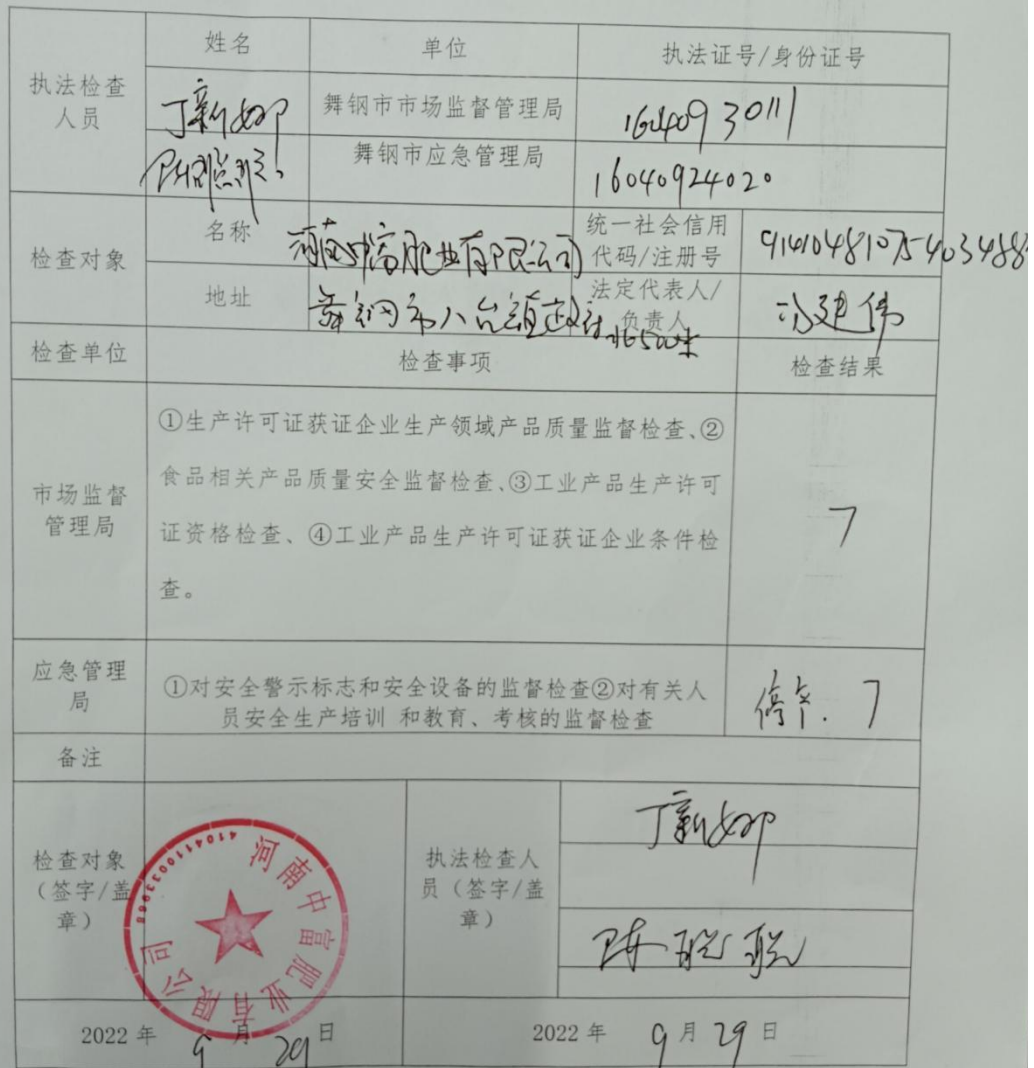 执法检查人员 姓名 单位 执法证号/身份证号
丁新娜 舞钢市市场监督管理局 16040930111
陈聪聪 舞钢市应急管理局 16040924020
检查对象 名称 河南中富肥业有限公司 统一社会信用代码/注册号
地址 舞钢市八台镇政府北500米 法定代表人/负责人 冯建伟
检查单位 检查事项 检查结果
市场监督管理局 ①生产许可证获证企业生产领域产品质量监督检查、②
食品相关产品质量安全监督检查、③工业产品生产许可
证资格检查、④工业产品生产许可证获证企业条件检
查。
7
应急管理局 ①对安全警示标志和安全设备的监督检查②对有关人
员安全生产培训 和教育、考核的监督检查
7
备注
检查对象（签字/盖章） 河南中富肥业有限公司
执法检查人员（签字/盖章） 丁新娜
陈聪聪
2022 年 9 月 29 日 2022 年 9 月 29 日